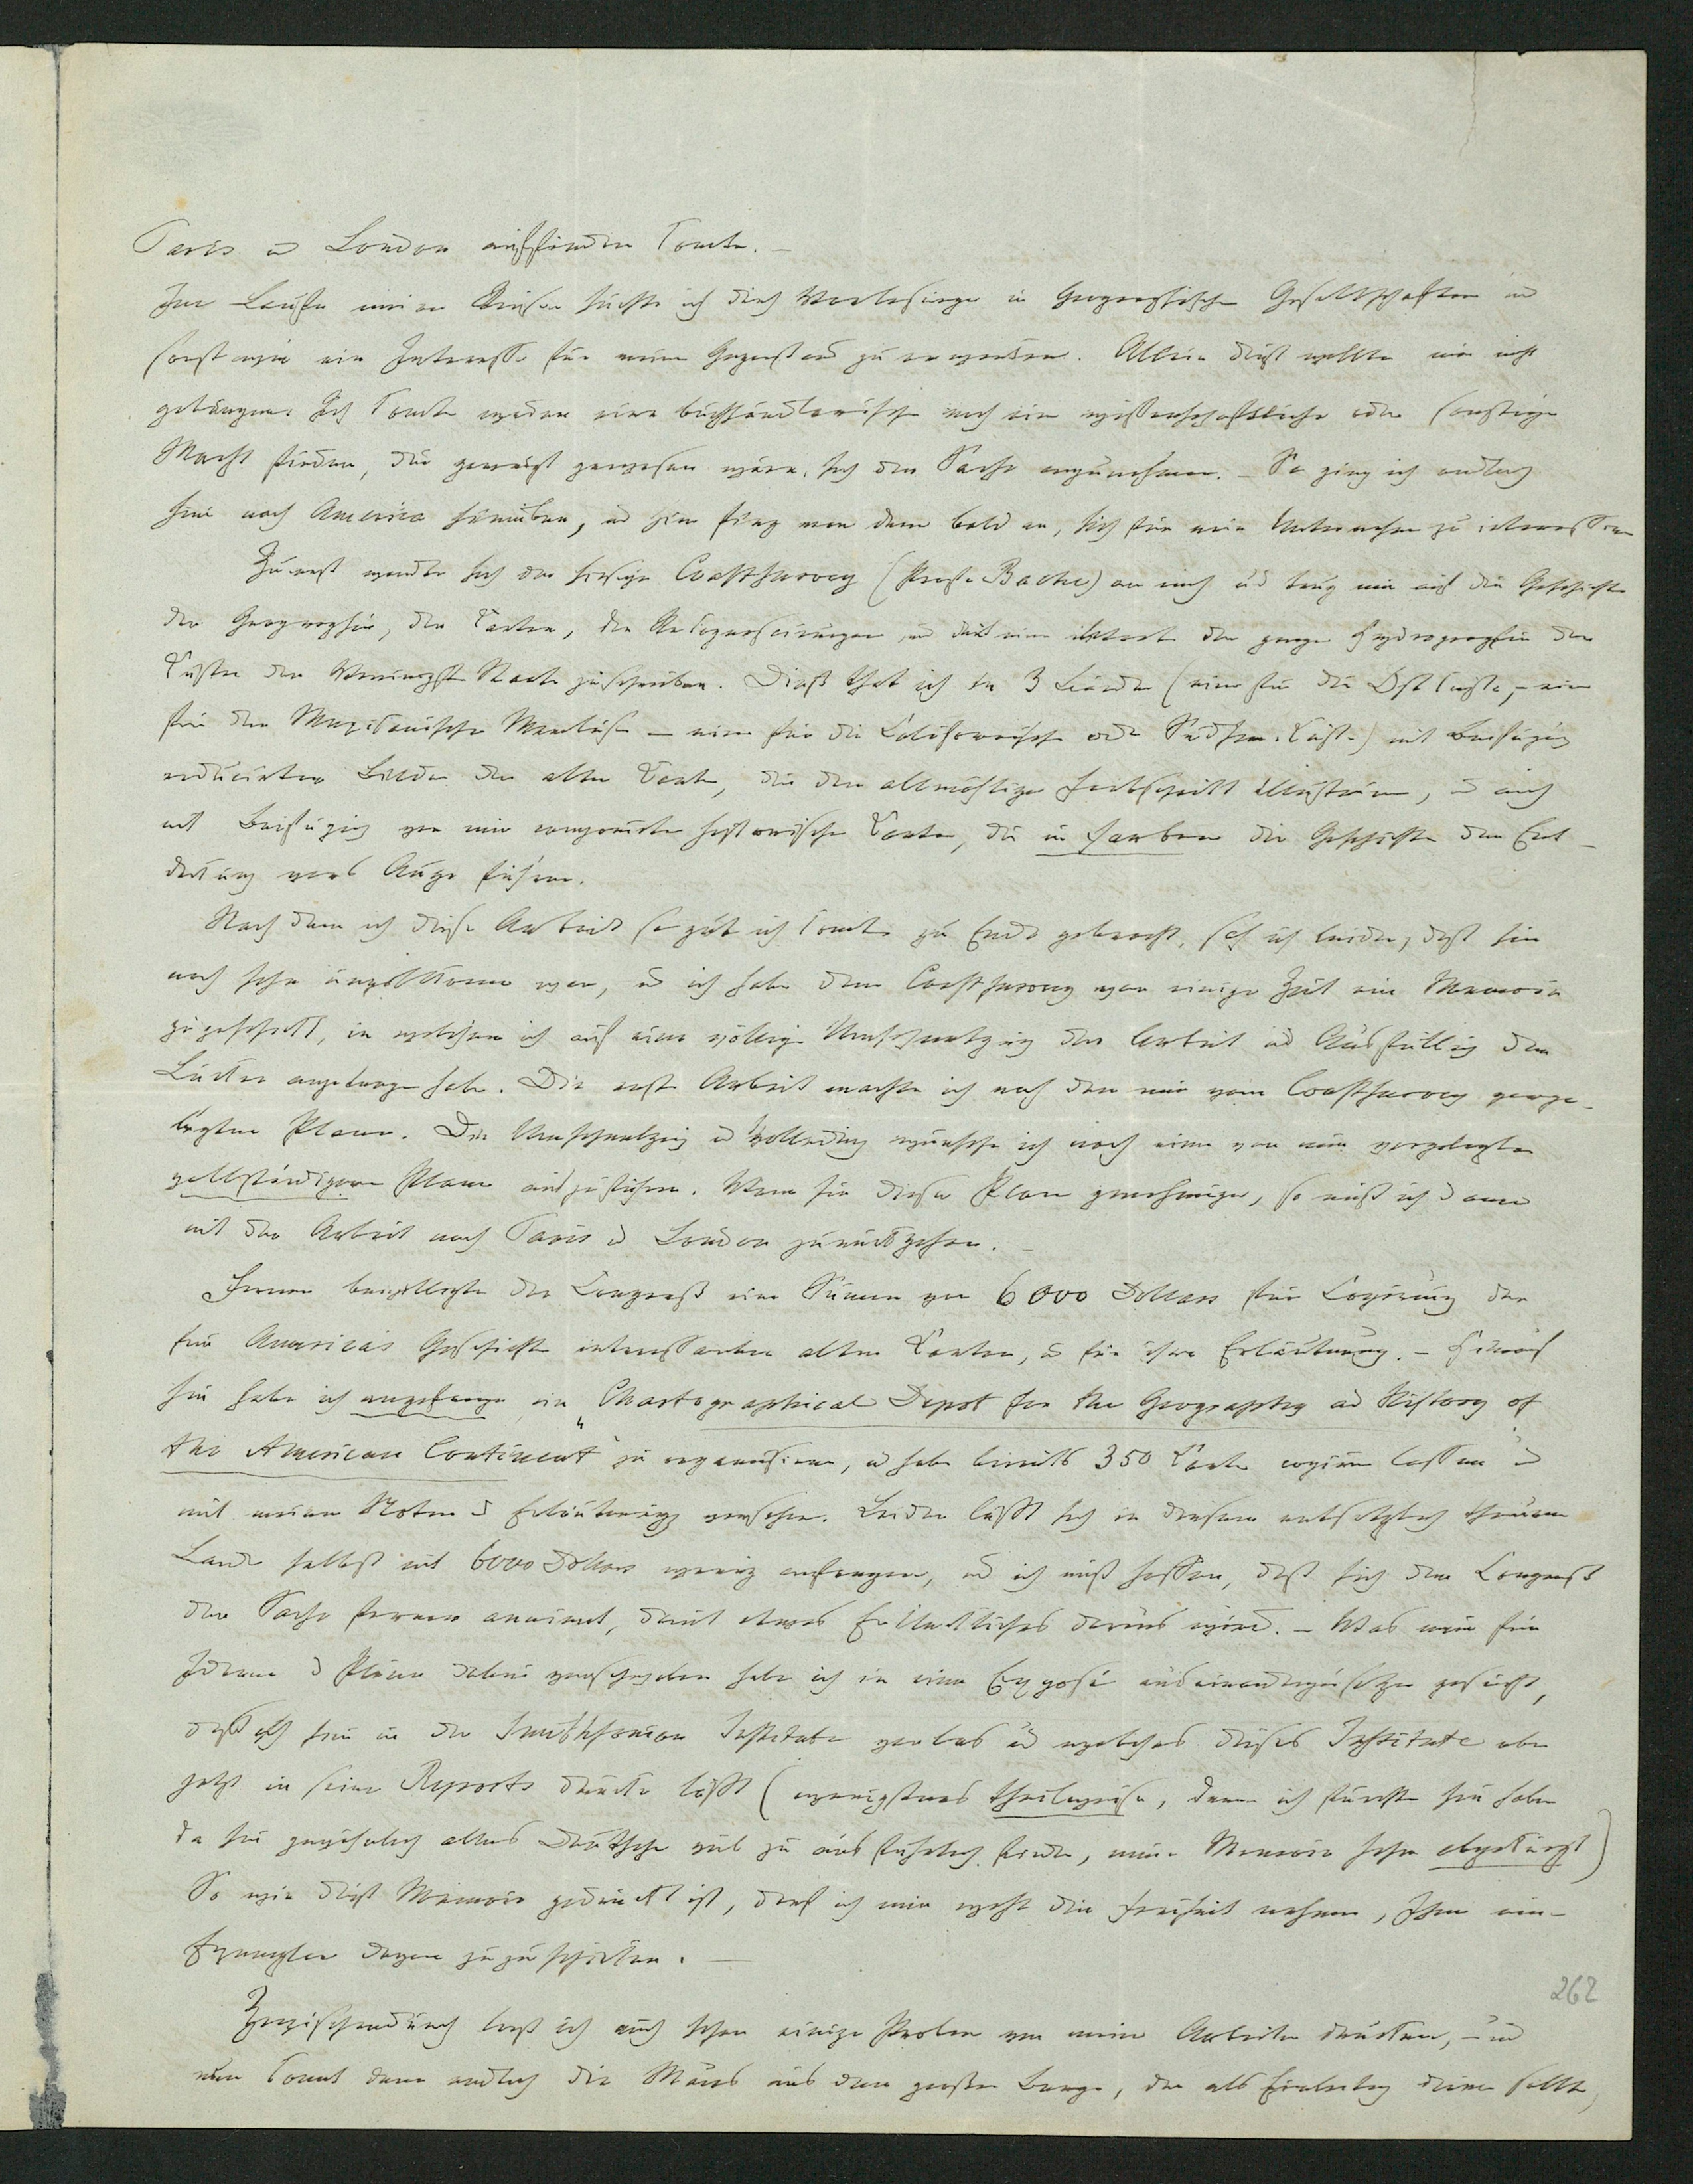 Paris u London auffinden konnte. –
Im Laufe meiner Reisen suchte ich durch Vorlesungen in Geographischen Gesellschaften und
sonst wie ein Interesse für meinen Gegenstand zu erwecken. Allein dieß wollte mir nicht
gelingen. Ich konnte weder eine buchhändlerische noch eine wissenschaftliche oder sonstige
Macht finden, die geneigt gewesen wäre, sich der Sache anzunehmen. – So ging ich endlich
hin nach America hinüber, und hier fing man denn bald an, sich für mein Unternehmen zu interessiren
Zuerst wandte sich der hiesige Coastsurvey (Profess. Bache) an mich und trug mir auf die Geschichte
der Geographie, der Karten, der Recognoscirungen und der ganzen Hydrographie der
Küsten der Vereinigten Staaten zu schreiben. Dieß that ich in 3 Bänden (einer für die Ostküste, – einer
für den Mexicanischen Meerbusen – einer für die Californische oder Südsee-Küste) mit Beifügung
reducirter Bilder der alten Karten, die den allmähligen Fortschritt illustriren, u auch
mit Beifügung von mir componirter historischer Karten, die in Farben die Geschichte der Ent-
deckung vors Auge führen.
Nachdem ich diese Arbeit so gut ich konnte zu Ende gebracht, sah ich leider, daß sie
noch sehr unvollkommen war, und ich habe dem Coastsurvey vor einiger Zeit ein Memoir
zugeschickt, in welchem ich auf eine völlige Umschmelzung der Arbeit und Ausfüllung der
Lücken angetragen habe. Die erste Arbeit machte ich nach dem mir vom Coastsurvey vorge-
legten Plane. Die Umschmelzung u Vollendung wünschte ich nach einem von mir vorgelegten
vollständigeren Plane auszuführen. Wenn sie diesen Plan genehmigen, so muß ich dann
mit der Arbeit nach Paris u London zurückgehen. –
Ferner bewilligte der Congreß eine Summe von 6000 Dollars für Copirung der
für Americas Geschichte interessanten alten Karten, u für ihre Erläuterung. – Hierauf
hin habe ich angefangen ein „Chartographical Depot for the Geography and History of
the American Continent“ zu organisiren, u habe bereits 350 Karten copiren lassen u
mit meinen Noten u Erläuterungen versehen. Leider läßt sich in diesem entsetzlich theuren
Lande selbst mit 6000 Dollars wenig anfangen, und ich muß hoffen, daß sich der Congreß
der Sache ferner annimmt, damit etwas Erkleckliches daraus wird. – Was mir für
Ideen u Pläne dabei vorschweben habe ich in einem Exposé auseinanderzusetzen gesucht,
daß ich hier in der Smithsonian Institute verlas und welches dieses Institute eben
jetzt in seine Reports drucken läßt (wenigstens theilweise, denn ich fürchte sie haben
da sie gewöhnlich alles Deutsche viel zu ausführlich finden, mein Memoir sehr abgekürzt)
So wie dieß Memoir gedruckt ist, darf ich mir wohl die Freiheit nehmen, Ihnen ein
Exemplar davon zuzuschicken. –
262
Zwischendurch ließ ich auch schon einige Proben von meinen Arbeiten drucken, – und
nun kommt denn endlich die Maus aus dem großen Berge, der als Einleitung dienen sollte,